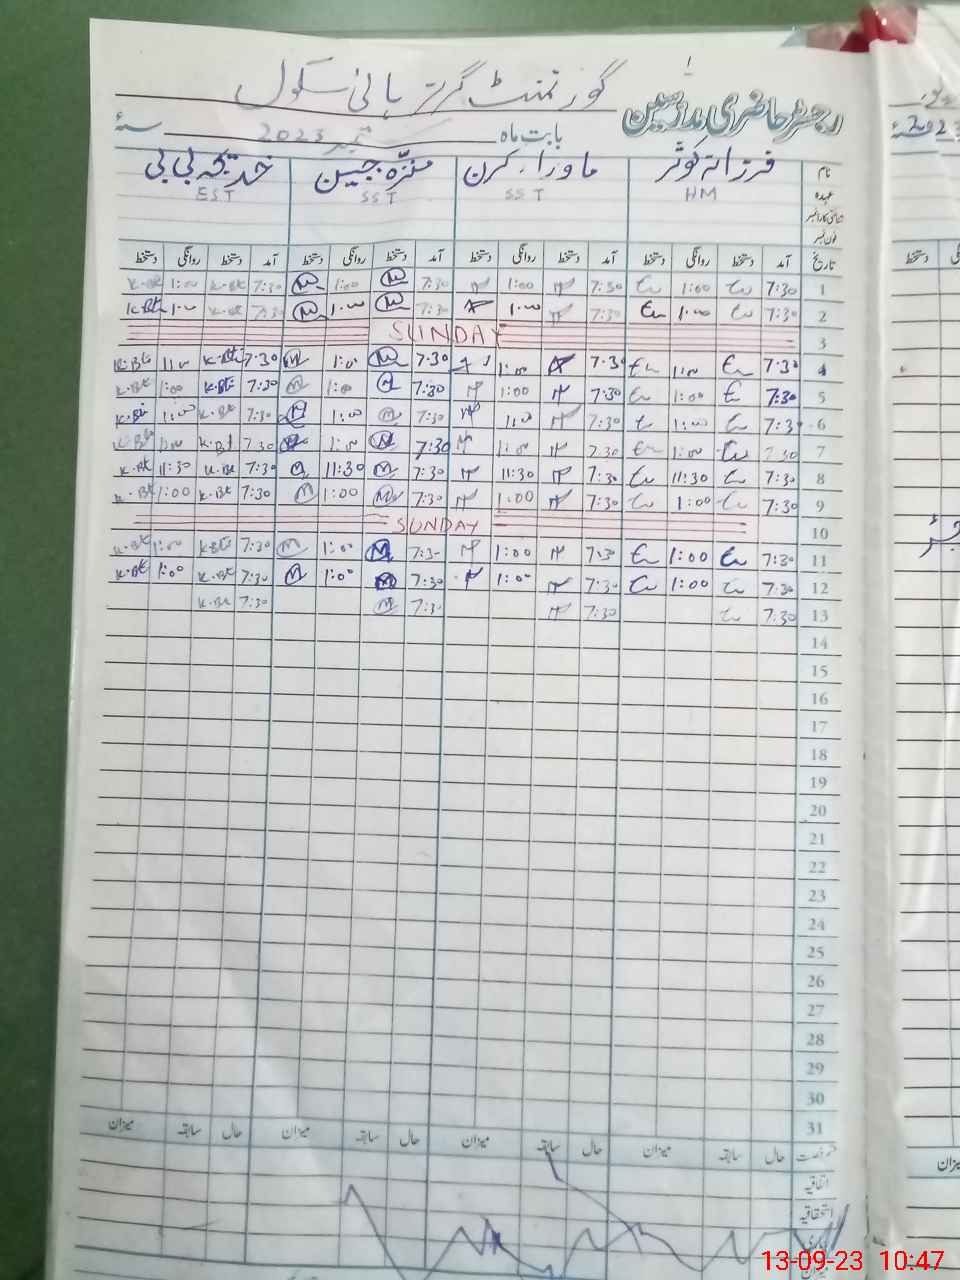 گورنمنٹ گرلز ہائی سکول
رجسٹر حاضری مدرسین
بابت ماہ ستمبر 2023 سنۂ
نام فرزانہ کوثر ماوراء کرن منزّہ جبین خدیجہ بی بی
عہدہ HM SST SST EST
شناختی کارڈ نمبر
فون نمبر
تاریخ آمد دستخط روانگی دستخط آمد دستخط روانگی دستخط آمد دستخط روانگی دستخط آمد دستخط روانگی دستخط
1 7:30 1:00 7:30 1:00 7:30 1:00 7:30 K.Bt 1:00 K.Bt
2 7:30 1:00 7:30 1:00 7:30 1:00 7:30 K.Bt 1:00 K.Bt
3 SUNDAY
4 7:30 1:00 7:30 1:00 7:30 1:00 7:30 K.Bt 1:00 K.Bt
5 7:30 1:00 7:30 1:00 7:30 1:00 7:30 K.Bt 1:00 K.Bt
6 7:30 1:00 7:30 1:00 7:30 1:00 7:30 K.Bt 1:00 K.Bt
7 7:30 1:00 7:30 1:00 7:30 1:00 7:30 K.Bt 1:00 K.Bt
8 7:30 11:30 7:30 11:30 7:30 11:30 7:30 K.Bt 11:30 K.Bt
9 7:30 1:00 7:30 1:00 7:30 1:00 7:30 K.Bt 1:00 K.Bt
10 SUNDAY
11 7:30 1:00 7:30 1:00 7:30 1:00 7:30 K.Bt 1:00 K.Bt
12 7:30 1:00 7:30 1:00 7:30 1:00 7:30 K.Bt 1:00 K.Bt
13 7:30 7:30 7:30 7:30 K.Bt
14
15
16
17
18
19
20
21
22
23
24
25
26
27
28
29
30
31
رخصت حال سابقہ میزان حال سابقہ میزان حال سابقہ میزان حال سابقہ میزان
اتفاقیہ
استحقاقیہ
بیماری
میزان
13-09-23 10:47
2023
دستخط
میزان